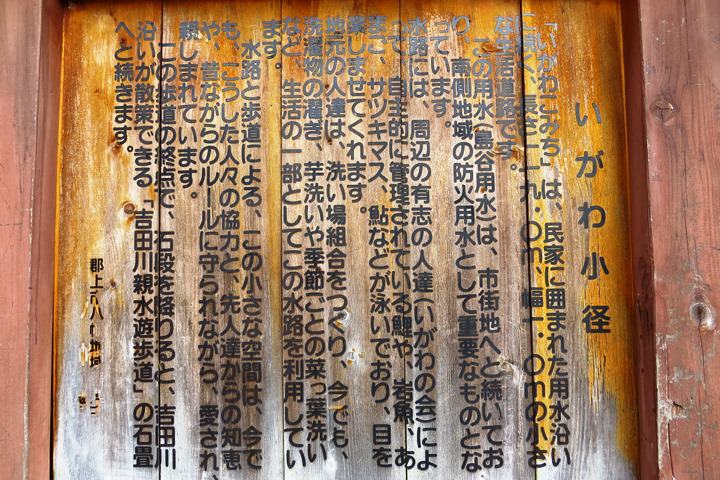 いがわ小径
「いがわこみち」は、民家に囲まれた用水沿い
に続く、長さ一一九.〇m、幅一.〇mの小さ
な生活道路です。
この用水(島谷用水)は、市街地へと続いてお
り、南側地域の防火用水として重要なものとな
っています。
水路には、周辺の有志の人達(いがわの会)によ
って、自主的に管理されている鯉や、岩魚、あ
まご、サツキマス、鮎などが泳いでおり、目を
楽しませてくれます。
地元の人達は、洗い場組合をつくり、今でも、
洗濯物の濯ぎ、芋洗いや季節ごとの菜っ葉洗い
など、生活の一部としてこの水路を利用してい
ます。
水路と歩道による、この小さな空間は、今で
も、こうした人々の協力と、先人達からの知恵
や、昔ながらのルールに守られながら、愛され、
親しまれています。
この歩道の終点で、石段を降りると、吉田川
沿いが散策できる「吉田川親水遊歩道」の石畳
へと続きます。
郡上市八